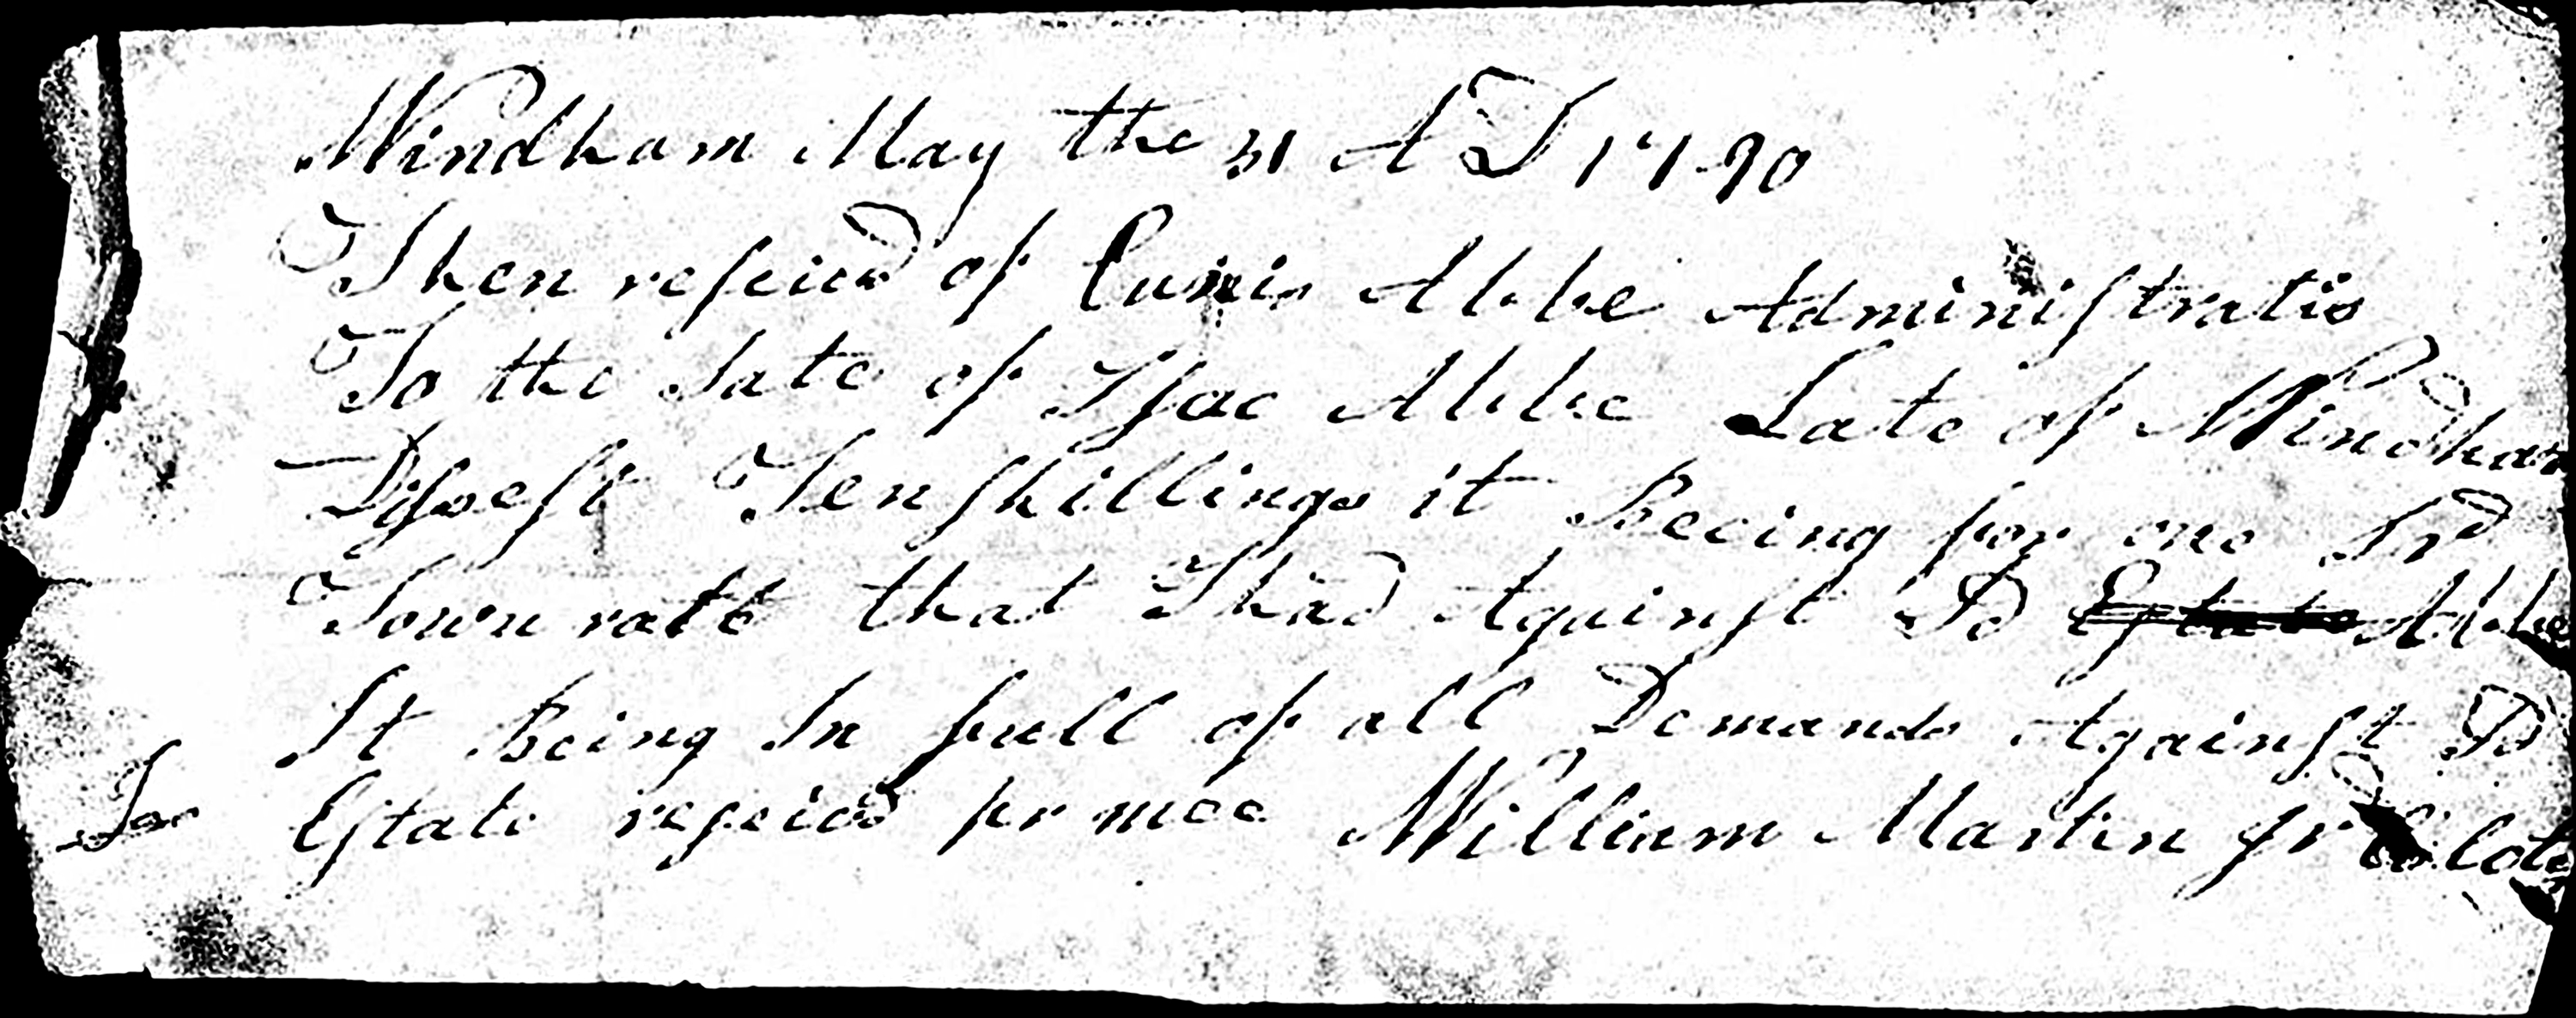 Windham May the 31 AD 1790
Then reseivd of Eunis Abbe Administratis
To the State of Isac Abbe Late of Windham
Dissest Ten shillings it Beeing for one
Town rate that I had Against Sd Estate Abbe
It Being In full of all Demands Against Sd
Estate reseivd pr mee William Martin Jr